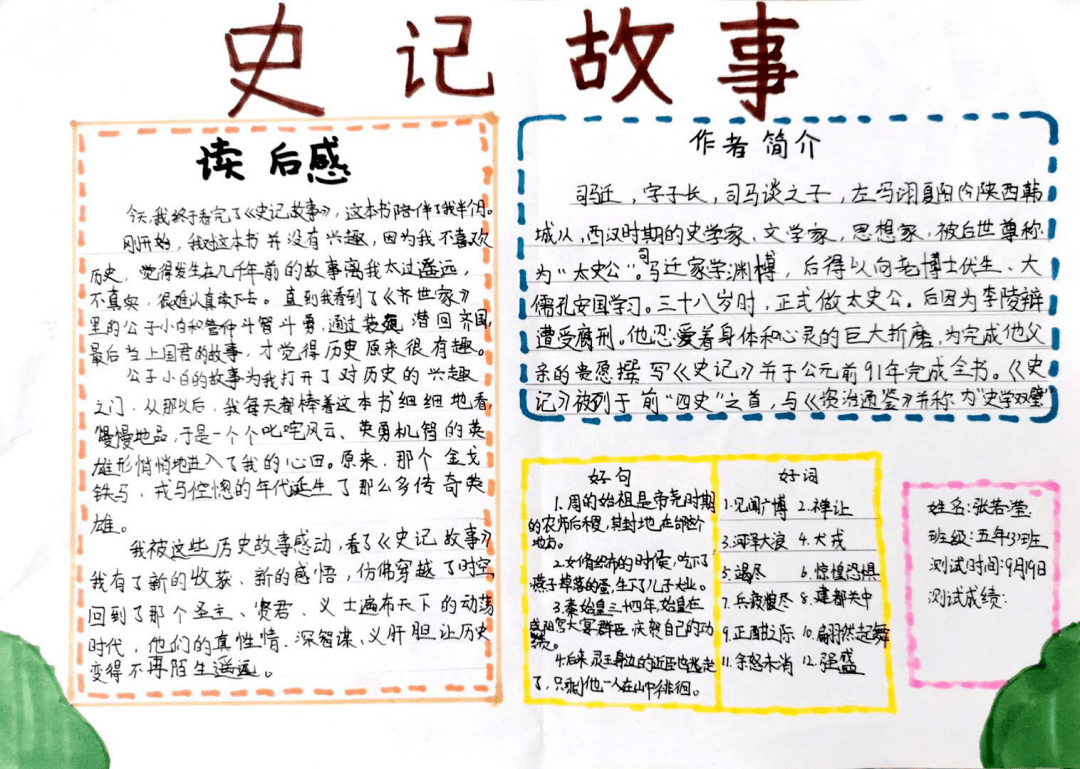 史记故事
读后感
今天,我终于看完了《史记故事》,这本书陪伴了我半个月。
刚开始,我对这本书并没有兴趣,因为我不喜欢
历史,觉得发生在几千年前的故事离我太过遥远,
不真实,很难认真读下去。直到我看到了《齐世家》
里的公子小白和管仲斗智斗勇,通过装死潜回齐国,
最后当上国君的故事,才觉得历史原来很有趣。
公子小白的故事为我打开了对历史的兴趣
之门,从那以后,我每天都捧着这本书细细地看,
慢慢地品,于是一个个叱咤风云、英勇机智的英
雄形悄悄地进入了我的心田。原来,那个金戈
铁马,戎马倥偬的年代诞生了那么多传奇英
雄。
我被这些历史故事感动,看了《史记故事》
我有了新的收获、新的感悟,仿佛穿越了时空
回到了那个圣主、贤君、义士遍布天下的动荡
时代,他们的真性情、深智谋、义肝胆让历史
变得不再陌生遥远。
作者简介
司马迁,字子长,司马谈之子,左冯翊夏阳今陕西韩
城人,西汉时期的史学家、文学家,思想家,被后世尊称
为“太史公”。司马迁家学渊博,后得以向老博士伏生、大
儒孔安国学习。三十八岁时,正式做太史公。后因为李陵辩
遭受腐刑。他忍爱着身体和心灵的巨大折磨,为完成他父
亲的贵愿撰写《史记》并于公元前91年完成全书。《史
记》被列于前“四史”之首,与《资治通鉴》并称为“史学双壁”
好句
1.周的始祖是帝尧时期
的农师后稷,其封地在邰这个
地方。
2.女脩织布的时候,吃下了
燕子掉落的蛋,生了儿子大业。
3.秦始皇三十四年,始皇在
咸阳宫大宴群臣庆祝自己的功
绩。
4.后来灵王身边的近臣也逃走
了,只剩他一人在山中徘徊。
好词
1.见闻广博 2.禅让
3.河平大浪 4.犬戎
5.竭尽 6.惊惶恐惧
7.兵疲粮尽 8.建都关中
9.正酣之际 10.翩然起舞
11.余怒未消 12.强盛
姓名:张若滢
班级:五年(3)班
测试时间:9月19日
测试成绩: